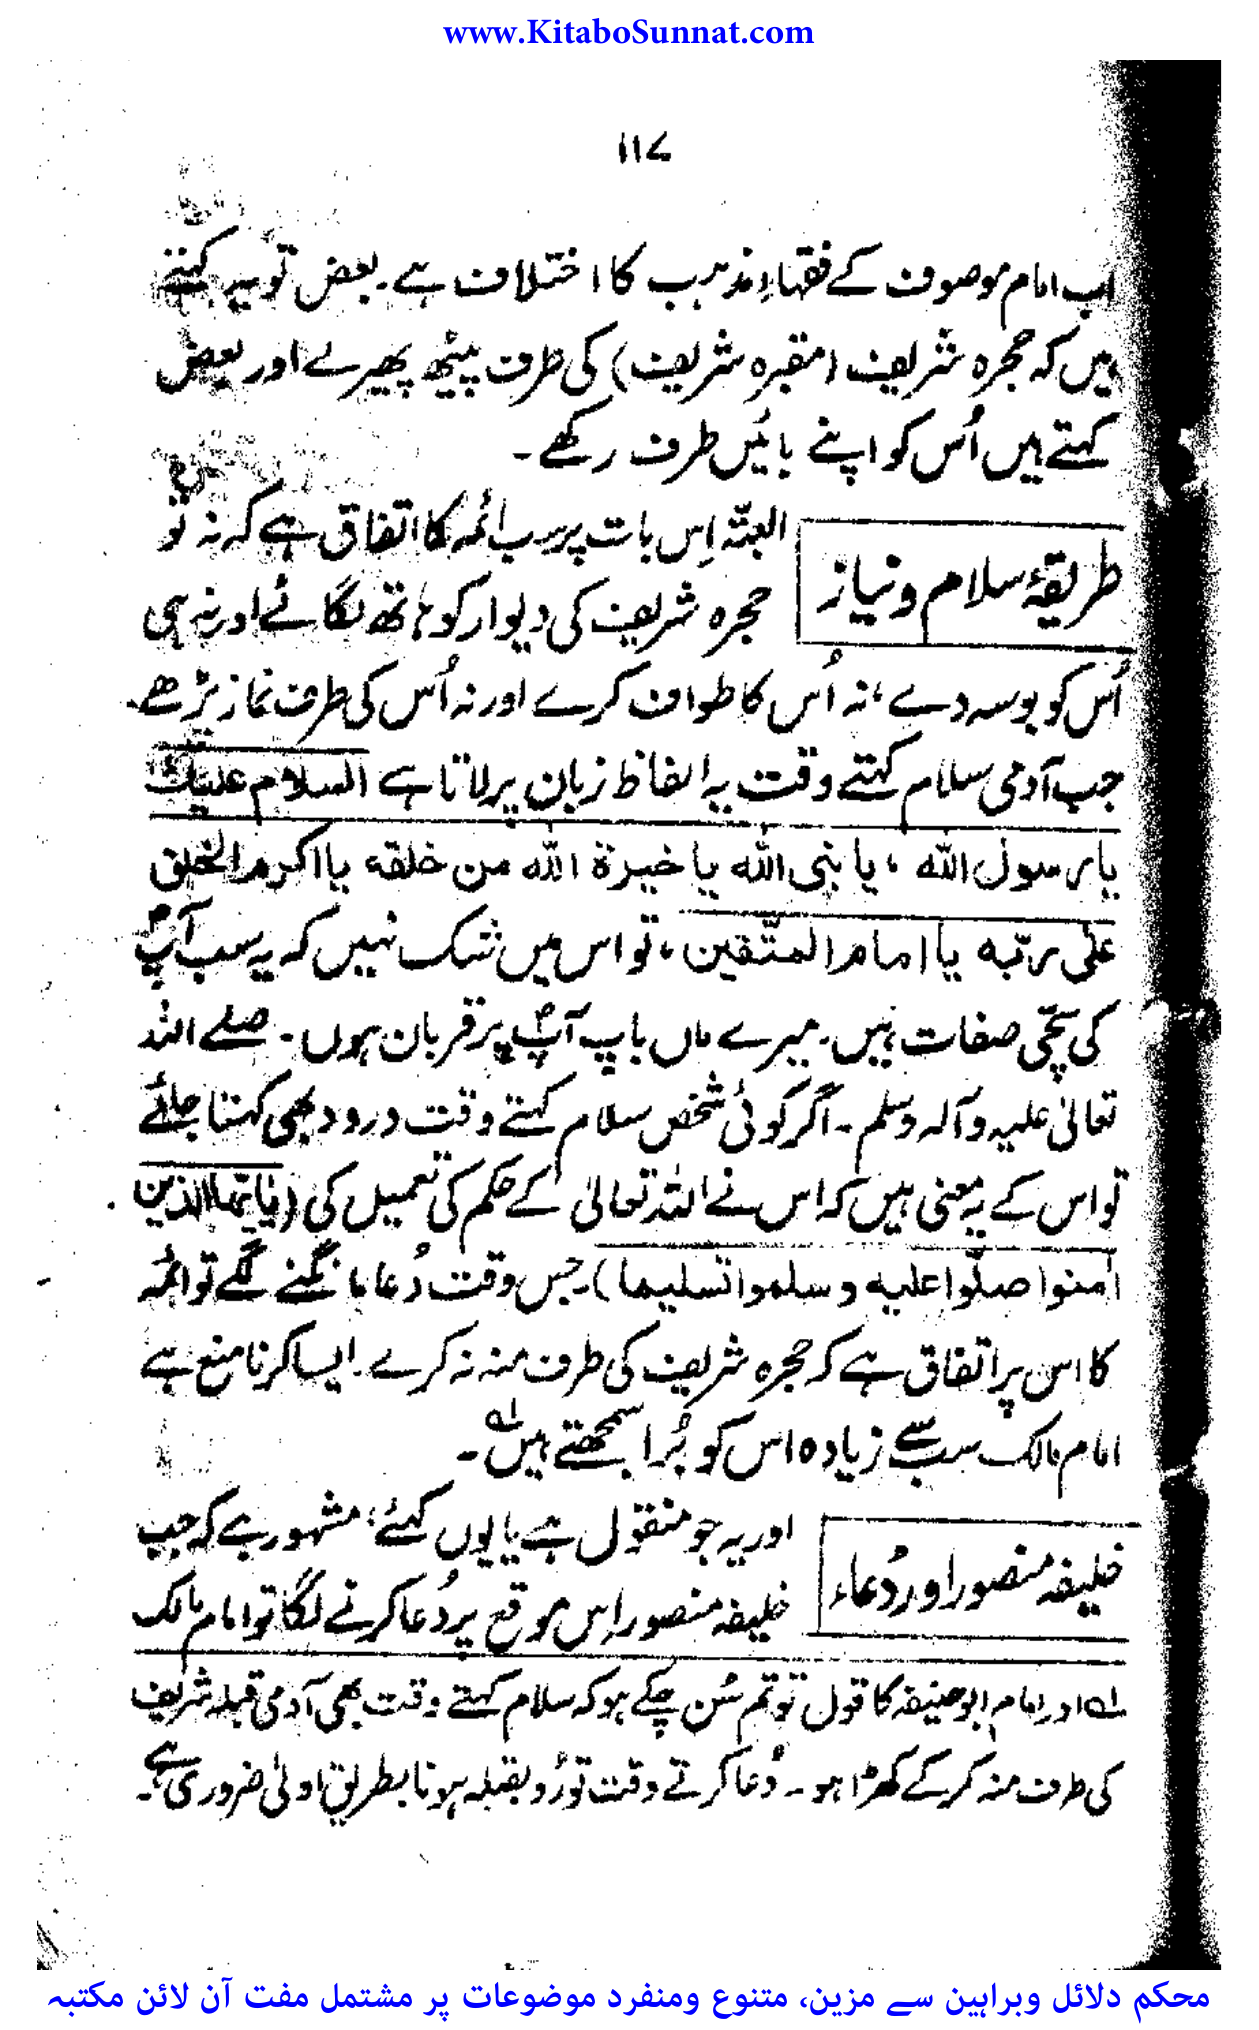 www.KitaboSunnat.com
۱۱۷
اب امام موصوف کے فقہاءِ مذہب کا اختلاف ہے۔ بعض تو یہ کہتے
ہیں کہ حجرہ شریف (مقبرہ شریف) کی طرف پیٹھ پھیرے اور بعض
کہتے ہیں اُس کو اپنے بائیں طرف رکھے۔
طریقۂ سلام و نیاز
البتہ اِس بات پر سب ائمہ کا اتفاق ہے کہ نہ تو
حجرہ شریف کی دیوار کو ہاتھ لگائے اور نہ ہی
اُس کو بوسہ دے، نہ اُس کا طواف کرے اور نہ اُس کی طرف نماز پڑھے۔
جب آدمی سلام کہتے وقت یہ الفاظ زبان پر لاتا ہے السلام علیك
یا رسول الله ، یا نبی الله یا خیرة الله من خلقه یا اکرم الخلق
علی ربّه یا امام المتّقین، تو اس میں شک نہیں کہ یہ سب آپؐ
کی سچّی صفات ہیں۔ میرے ماں باپ آپؐ پر قربان ہوں۔ صلے اللہ
تعالیٰ علیہ وآلہ وسلم۔ اگر کوئی شخص سلام کہتے وقت درود بھی کہتا جائے
تو اس کے یہ معنی ہیں کہ اس نے اللہ تعالیٰ کے حکم کی تعمیل کی (یٰایها الذین
اٰمنوا صلّوا علیه وسلموا تسلیما)۔ جس وقت دُعا مانگنے لگے تو ائمہ
کا اس پر اتفاق ہے کہ حجرہ شریف کی طرف منہ نہ کرے۔ ایسا کرنا منع ہے
امام مالک سب سے زیادہ اس کو بُرا سمجھتے ہیں۔ ؎۱
خلیفہ منصور اور دُعاء
اور یہ جو منقول ہے یا یوں کہئے، مشہور ہے کہ جب
خلیفہ منصور اِس موقع پر دُعا کرنے لگا تو امام مالک
؎۱ اور امام ابو حنیفہ کا قول تو تم سُن چکے ہو کہ سلام کہتے وقت بھی آدمی قبلہ شریف
کی طرف منہ کر کے کھڑا ہو۔ دُعا کرتے وقت تو رُو بقبلہ ہونا بطریق اولیٰ ضروری ہے۔
محکم دلائل وبراہین سے مزین، متنوع ومنفرد موضوعات پر مشتمل مفت آن لائن مکتبہ